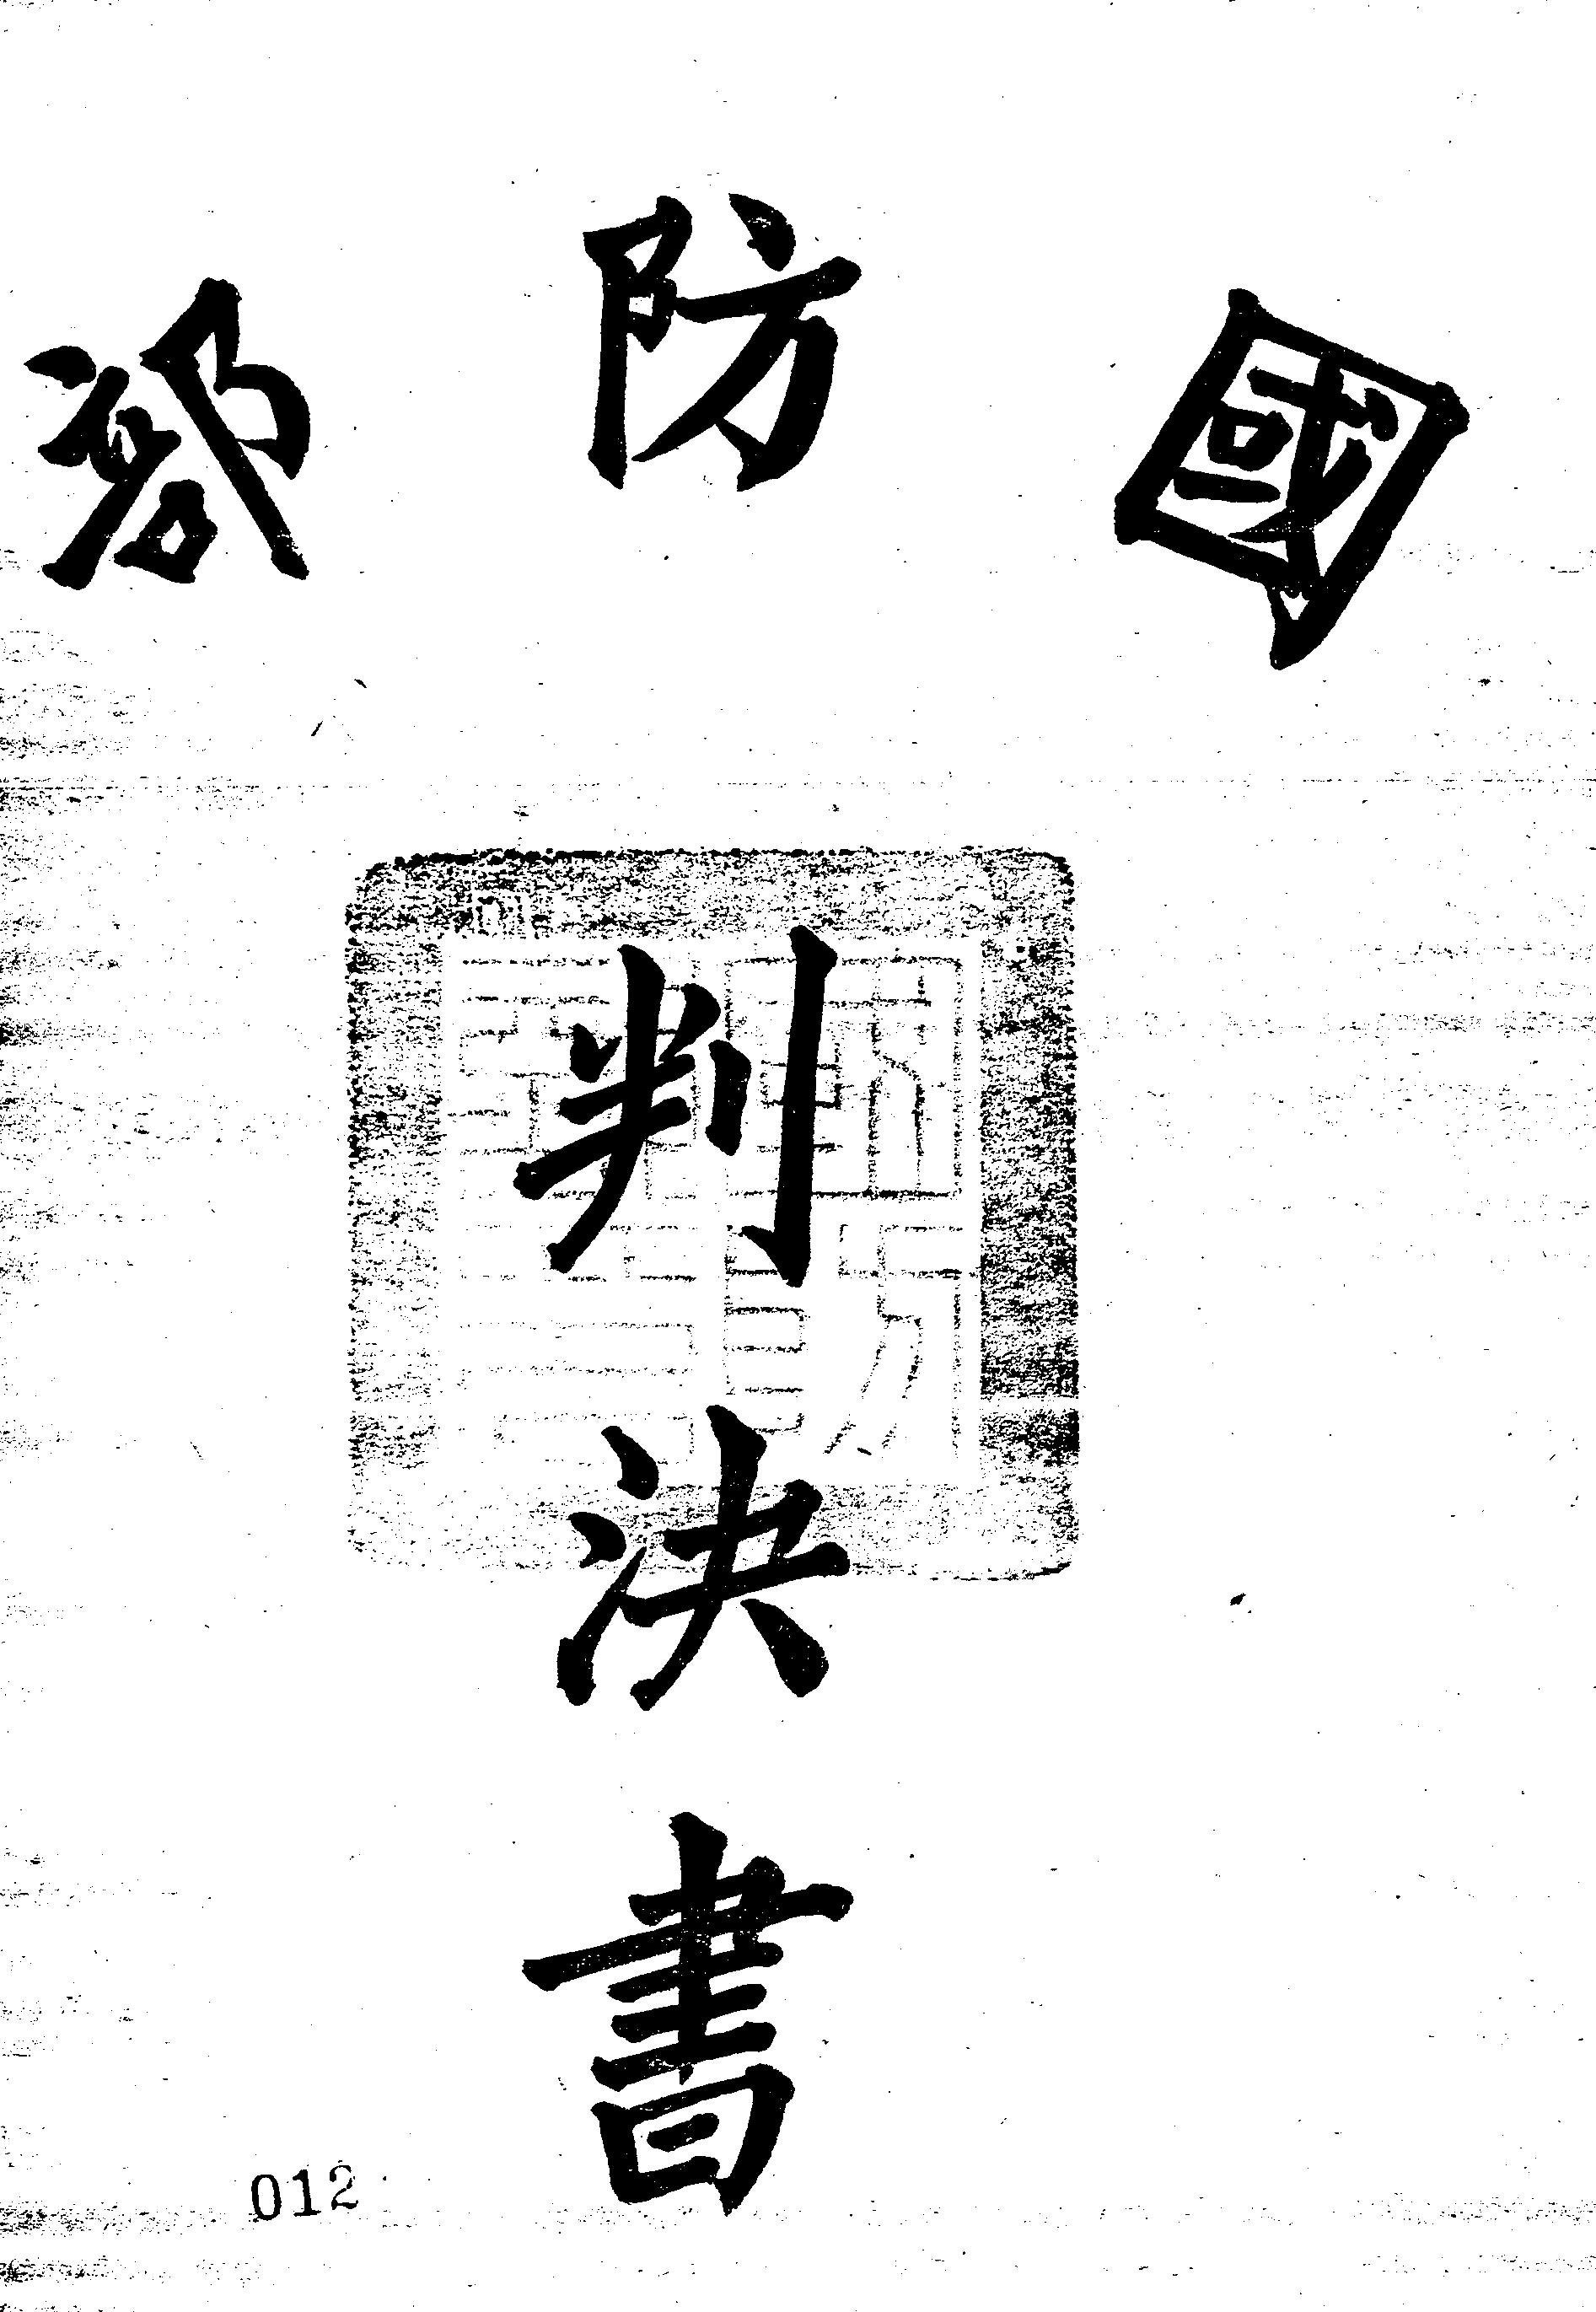 國防部
判決書
012